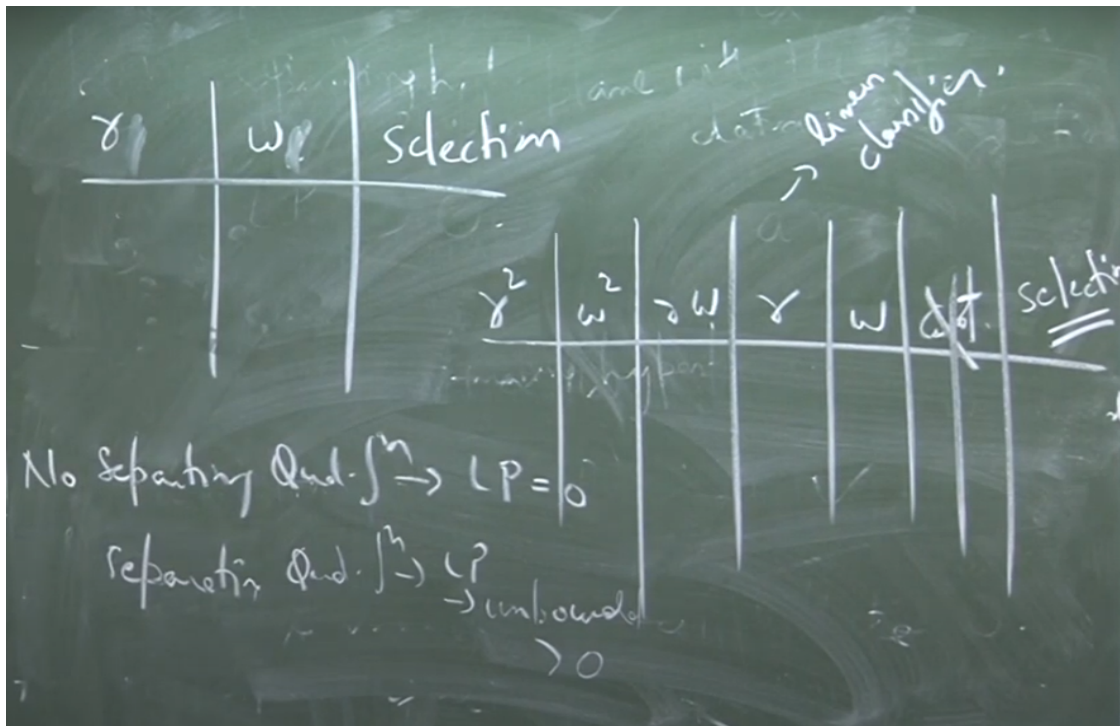 r | w | Selection
linear
classifier.
r² | w² | rw | r | w | selectio
No Separating Quad. fⁿ → LP = 0
Separatin Quad. fⁿ → LP
→ unbounded
> 0